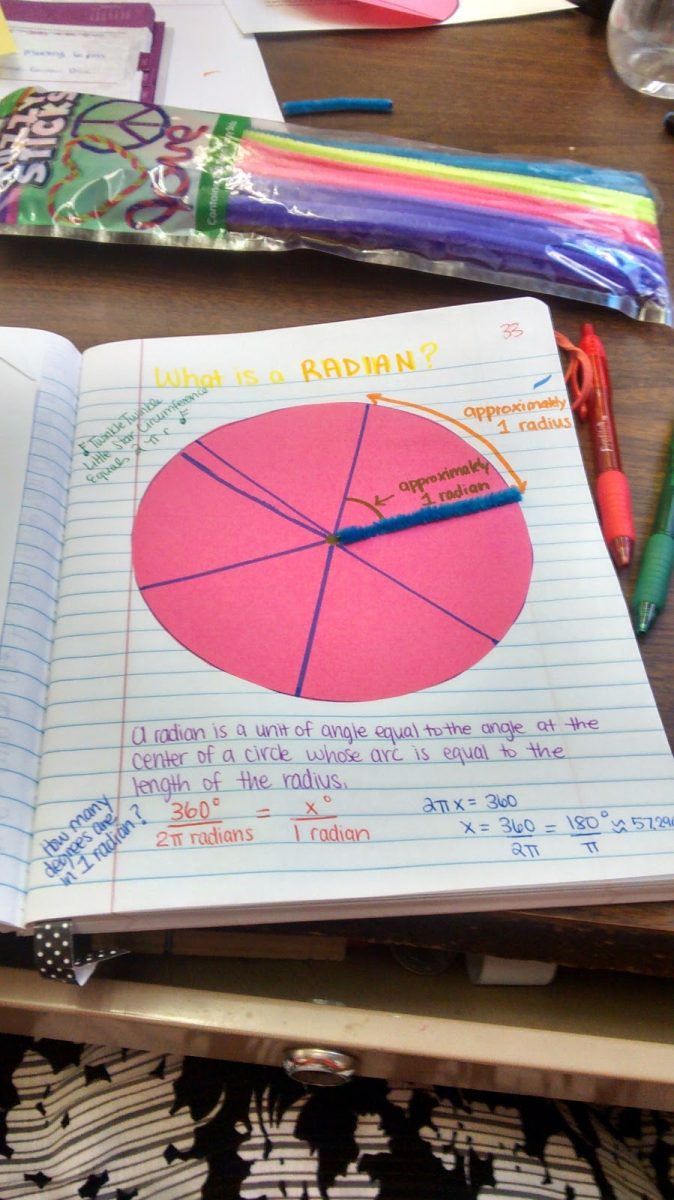 STICKS
love
33
What is a RADIAN?
Twinkle Twinkle
Little Star Circumference
Equals 2 π r
approximately
1 radius
approximately
1 radian
A radian is a unit of angle equal to the angle at the
center of a circle whose arc is equal to the
length of the radius.
How many
degrees are
in 1 radian?
360° / 2π radians = x° / 1 radian
2πx = 360
x = 360 / 2π = 180° / π ≈ 57.296